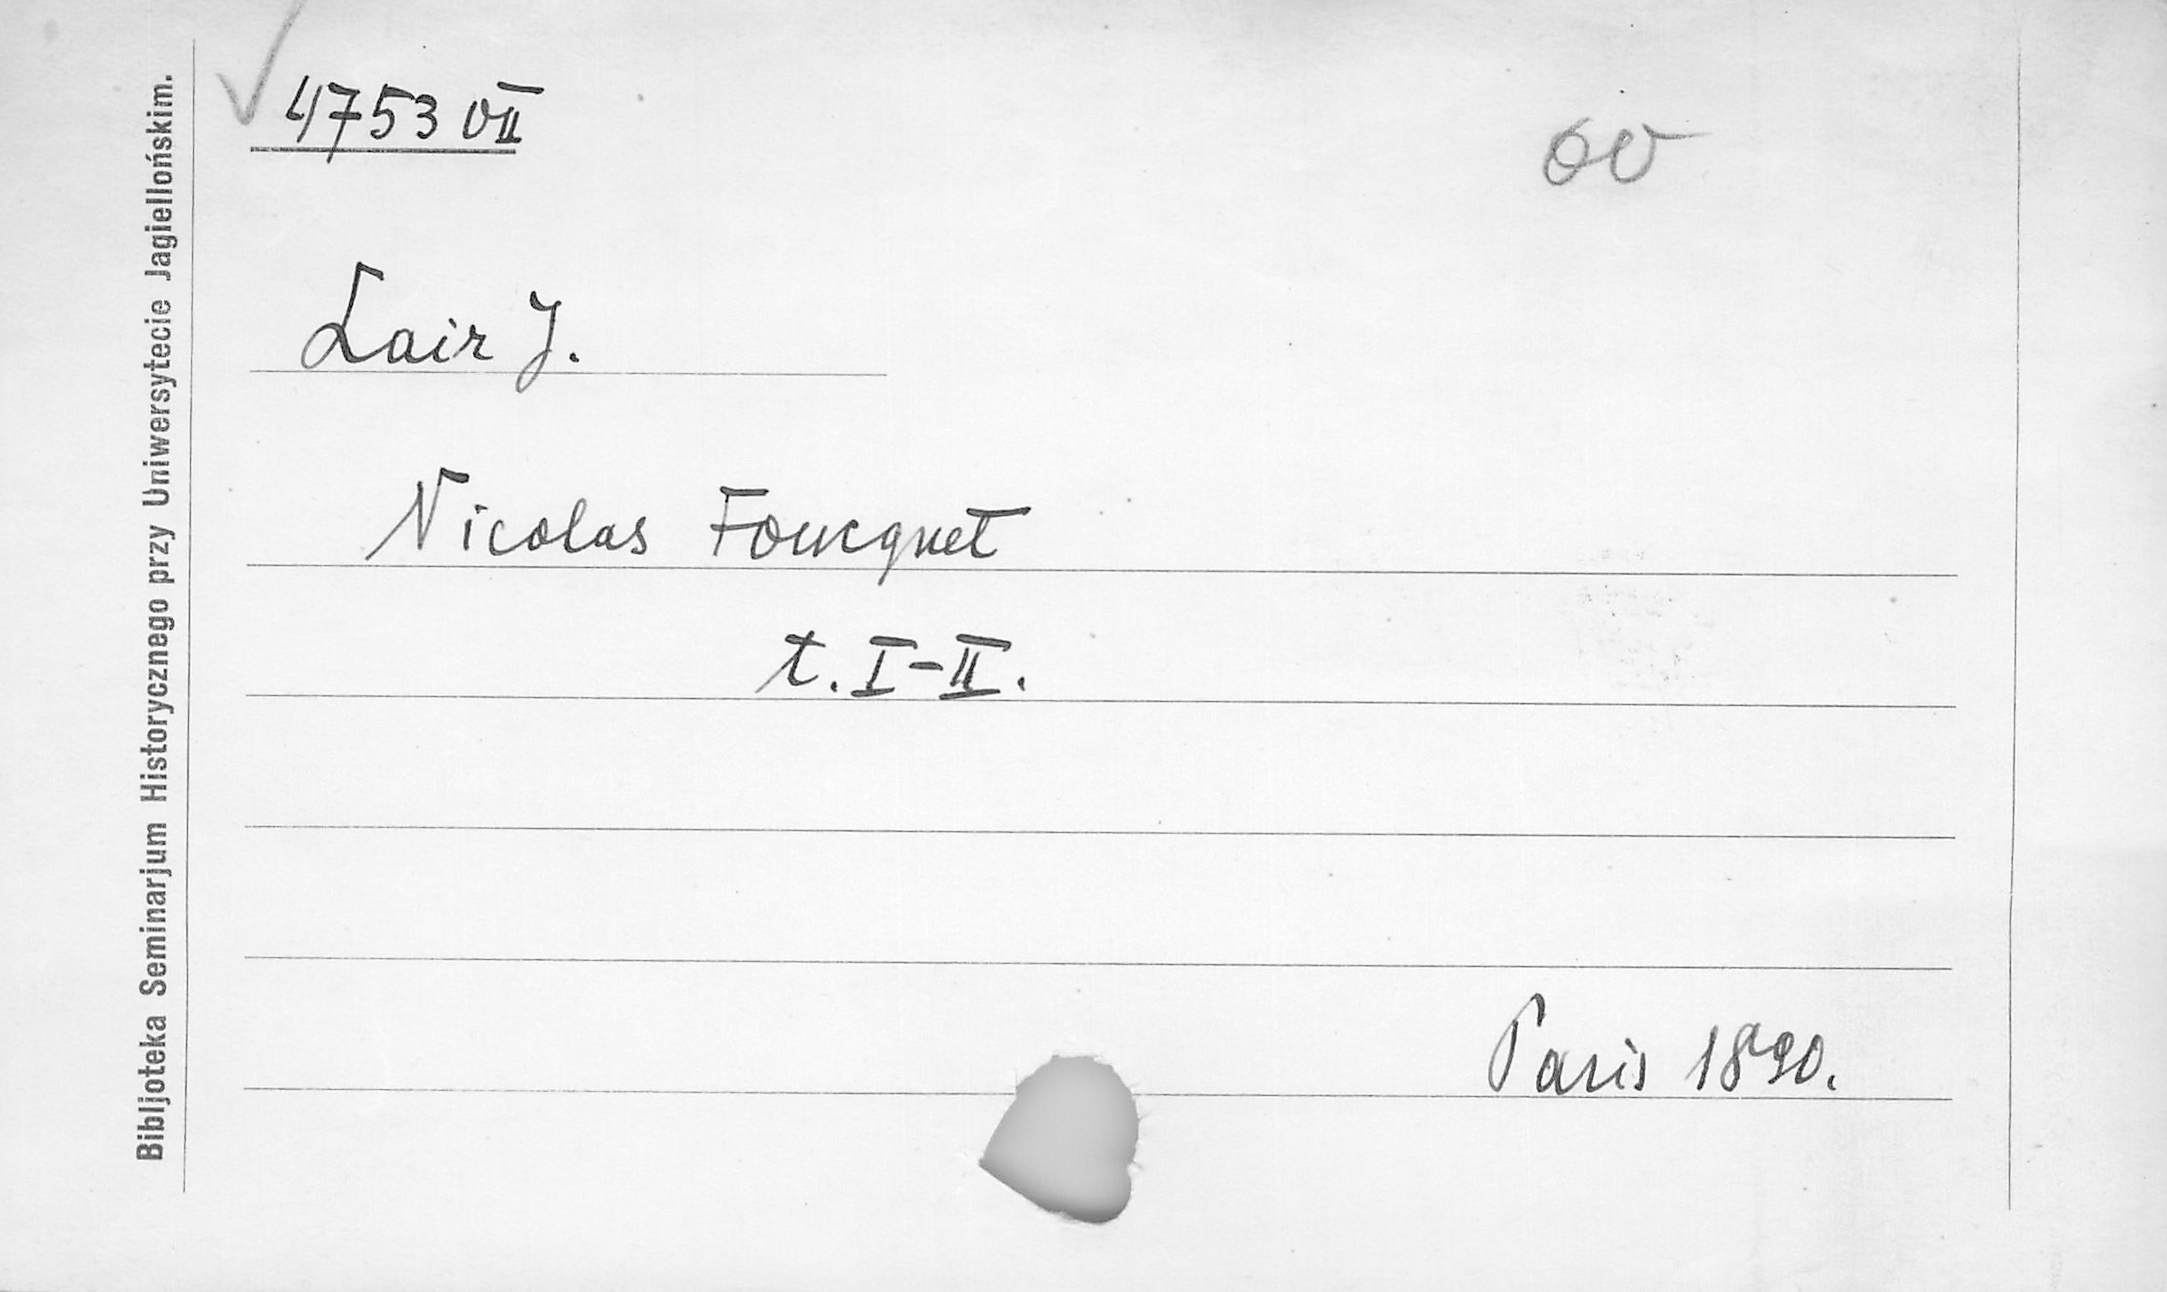 4753 VII
Lair J.
Nicolas Foucquet
t. I-II.
Paris 1890.
Bibljoteka Seminarjum Historycznego przy Uniwersytecie Jagiellońskim.